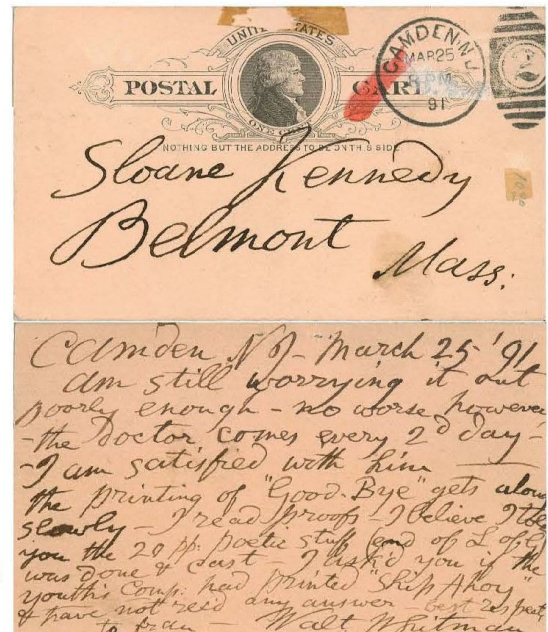 UNITED STATES
POSTAL CARD
ONE CENT
NOTHING BUT THE ADDRESS TO BE ON THIS SIDE.
CAMDEN N.J.
MAR 25
8 PM
91
Sloane Kennedy
Belmont
Mass:
Camden NJ - March 25 '91
am still worrying it out
poorly enough - no worse however
- the doctor comes every 2d day -
- I am satisfied with him
the printing of "Good-Bye" gets along
slowly - I read proofs - I believe I told
you the 20 pp: poetic stuff end of L of G
was done & cast - I ask'd you if the
youth's Comp: had printed "Ship Ahoy"
& have not rec'd any answer - best respects
to frau - Walt Whitman